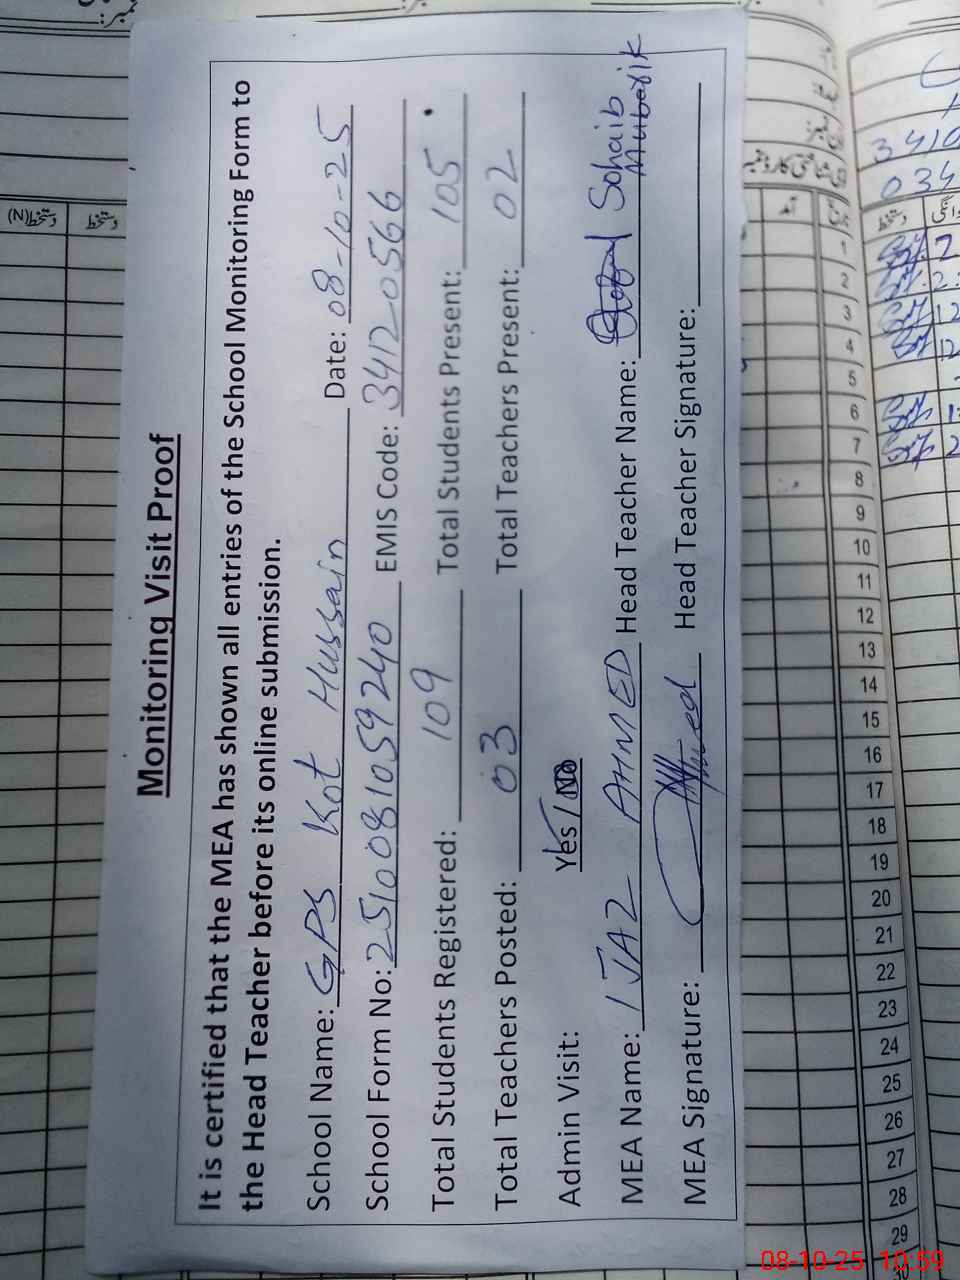 Monitoring Visit Proof
It is certified that the MEA has shown all entries of the School Monitoring Form to
the Head Teacher before its online submission.
School Name: GPS Kot Hussain Date: 08-10-25
School Form No: 251008105924 0 EMIS Code: 34120566
Total Students Registered: 109 Total Students Present: 105
Total Teachers Posted: 03 Total Teachers Present: 02
Admin Visit: Yes/No
MEA Name: IJAZ AHMED Head Teacher Name: Sohaib Mubarik
MEA Signature: Head Teacher Signature:
دستخط(N) دستخط
تاریخ آمد دستخط
3410
034
1
2
3
4
5
6
7
8
9
10
11
12
13
14
15
16
17
18
19
20
21
22
23
24
25
26
27
28
29
08-10-25 10:59